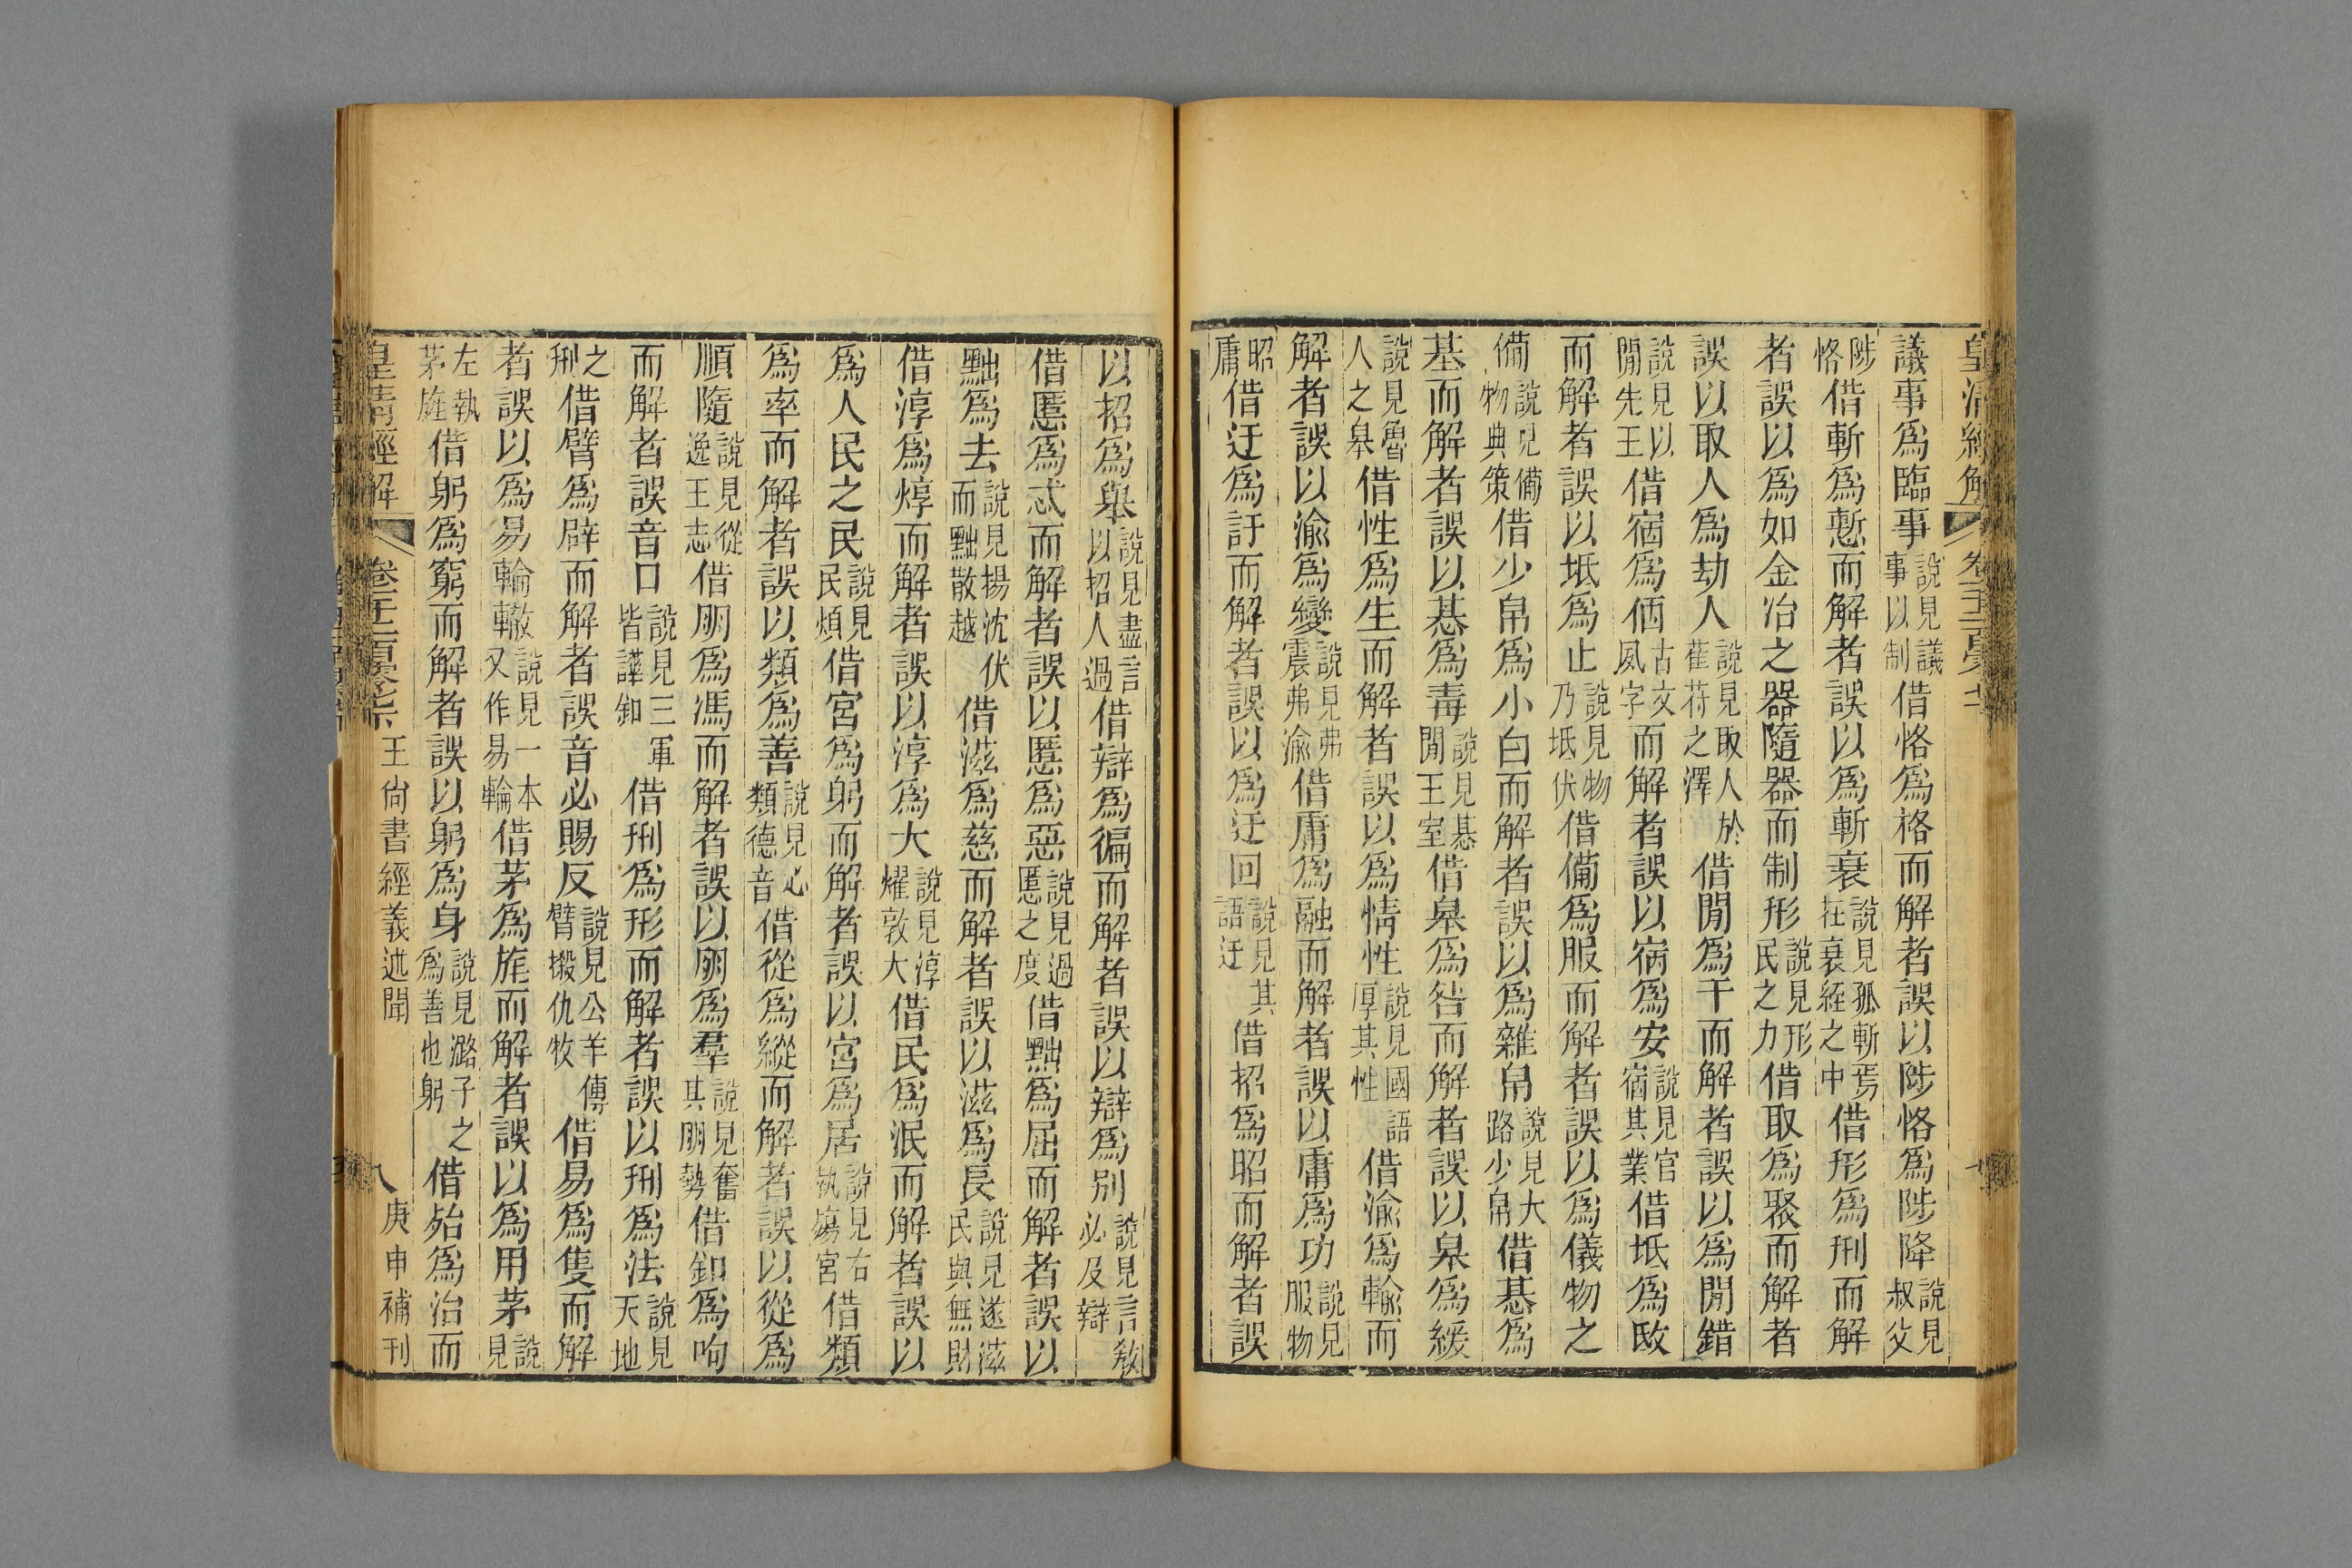 皇清經解 卷
議事爲臨事說見議事以制借恪爲格而解者誤以陟恪爲陟降說見叔父
陟恪借斬爲慙而解者誤以爲斬衰說見孤斬焉在衰絰之中借形爲刑而解
者誤以爲如金冶之器隨器而制形說見形民之力借取爲聚而解者
誤以取人爲劫人說見取人於萑苻之澤借閒爲干而解者誤以爲閒錯
說見以閒先王借宿爲㑉古文夙字而解者誤以宿爲安說見官宿其業借坻爲㡳
而解者誤以坻爲止說見物乃坻伏借備爲服而解者誤以爲儀物之
備說見備物典策借少帛爲小白而解者誤以爲雜帛說見大路少帛借惎爲
基而解者誤以惎爲毒說見惎閒王室借皋爲咎而解者誤以皋爲緩
說見魯人之皋借性爲生而解者誤以爲情性說見國語厚其性借渝爲輸而
解者誤以渝爲變說見弗震弗渝借庸爲融而解者誤以庸爲功說見服物
昭庸借迂爲訏而解者誤以爲迂回說見其語迂借招爲昭而解者誤
以招爲舉說見盡言以招人過借辯爲徧而解者誤以辯爲別說見言敎必及辯
借慝爲忒而解者誤以慝爲惡說見過慝之度借黜爲屈而解者誤以
黜爲去說見揚沈伏而黜散越借滋爲慈而解者誤以滋爲長說見遂滋民與無財
借淳爲焞而解者誤以淳爲大說見淳耀敦大借民爲泯而解者誤以
爲人民之民說見民煩借宮爲躬而解者誤以宮爲居說見右執殤宮借類
爲率而解者誤以類爲善說見必類德音借從爲縱而解者誤以從爲
順隨說見從逸王志借朋爲馮而解者誤以朋爲羣說見奮其朋勢借釦爲呴
而解者誤音口說見三軍皆譁釦借刑爲形而解者誤以刑爲法說見天地
之刑借臂爲辟而解者誤音必賜反說見公羊傳臂摋仇牧借易爲隻而解
者誤以爲易輪轍說見一本又作易輪借茅爲旄而解者誤以爲用茅說見
左執茅旌借躬爲窮而解者誤以躬爲身說見潞子之爲善也躬借殆爲治而
皇清經解 王尙書經義述聞 八 庚申補刊